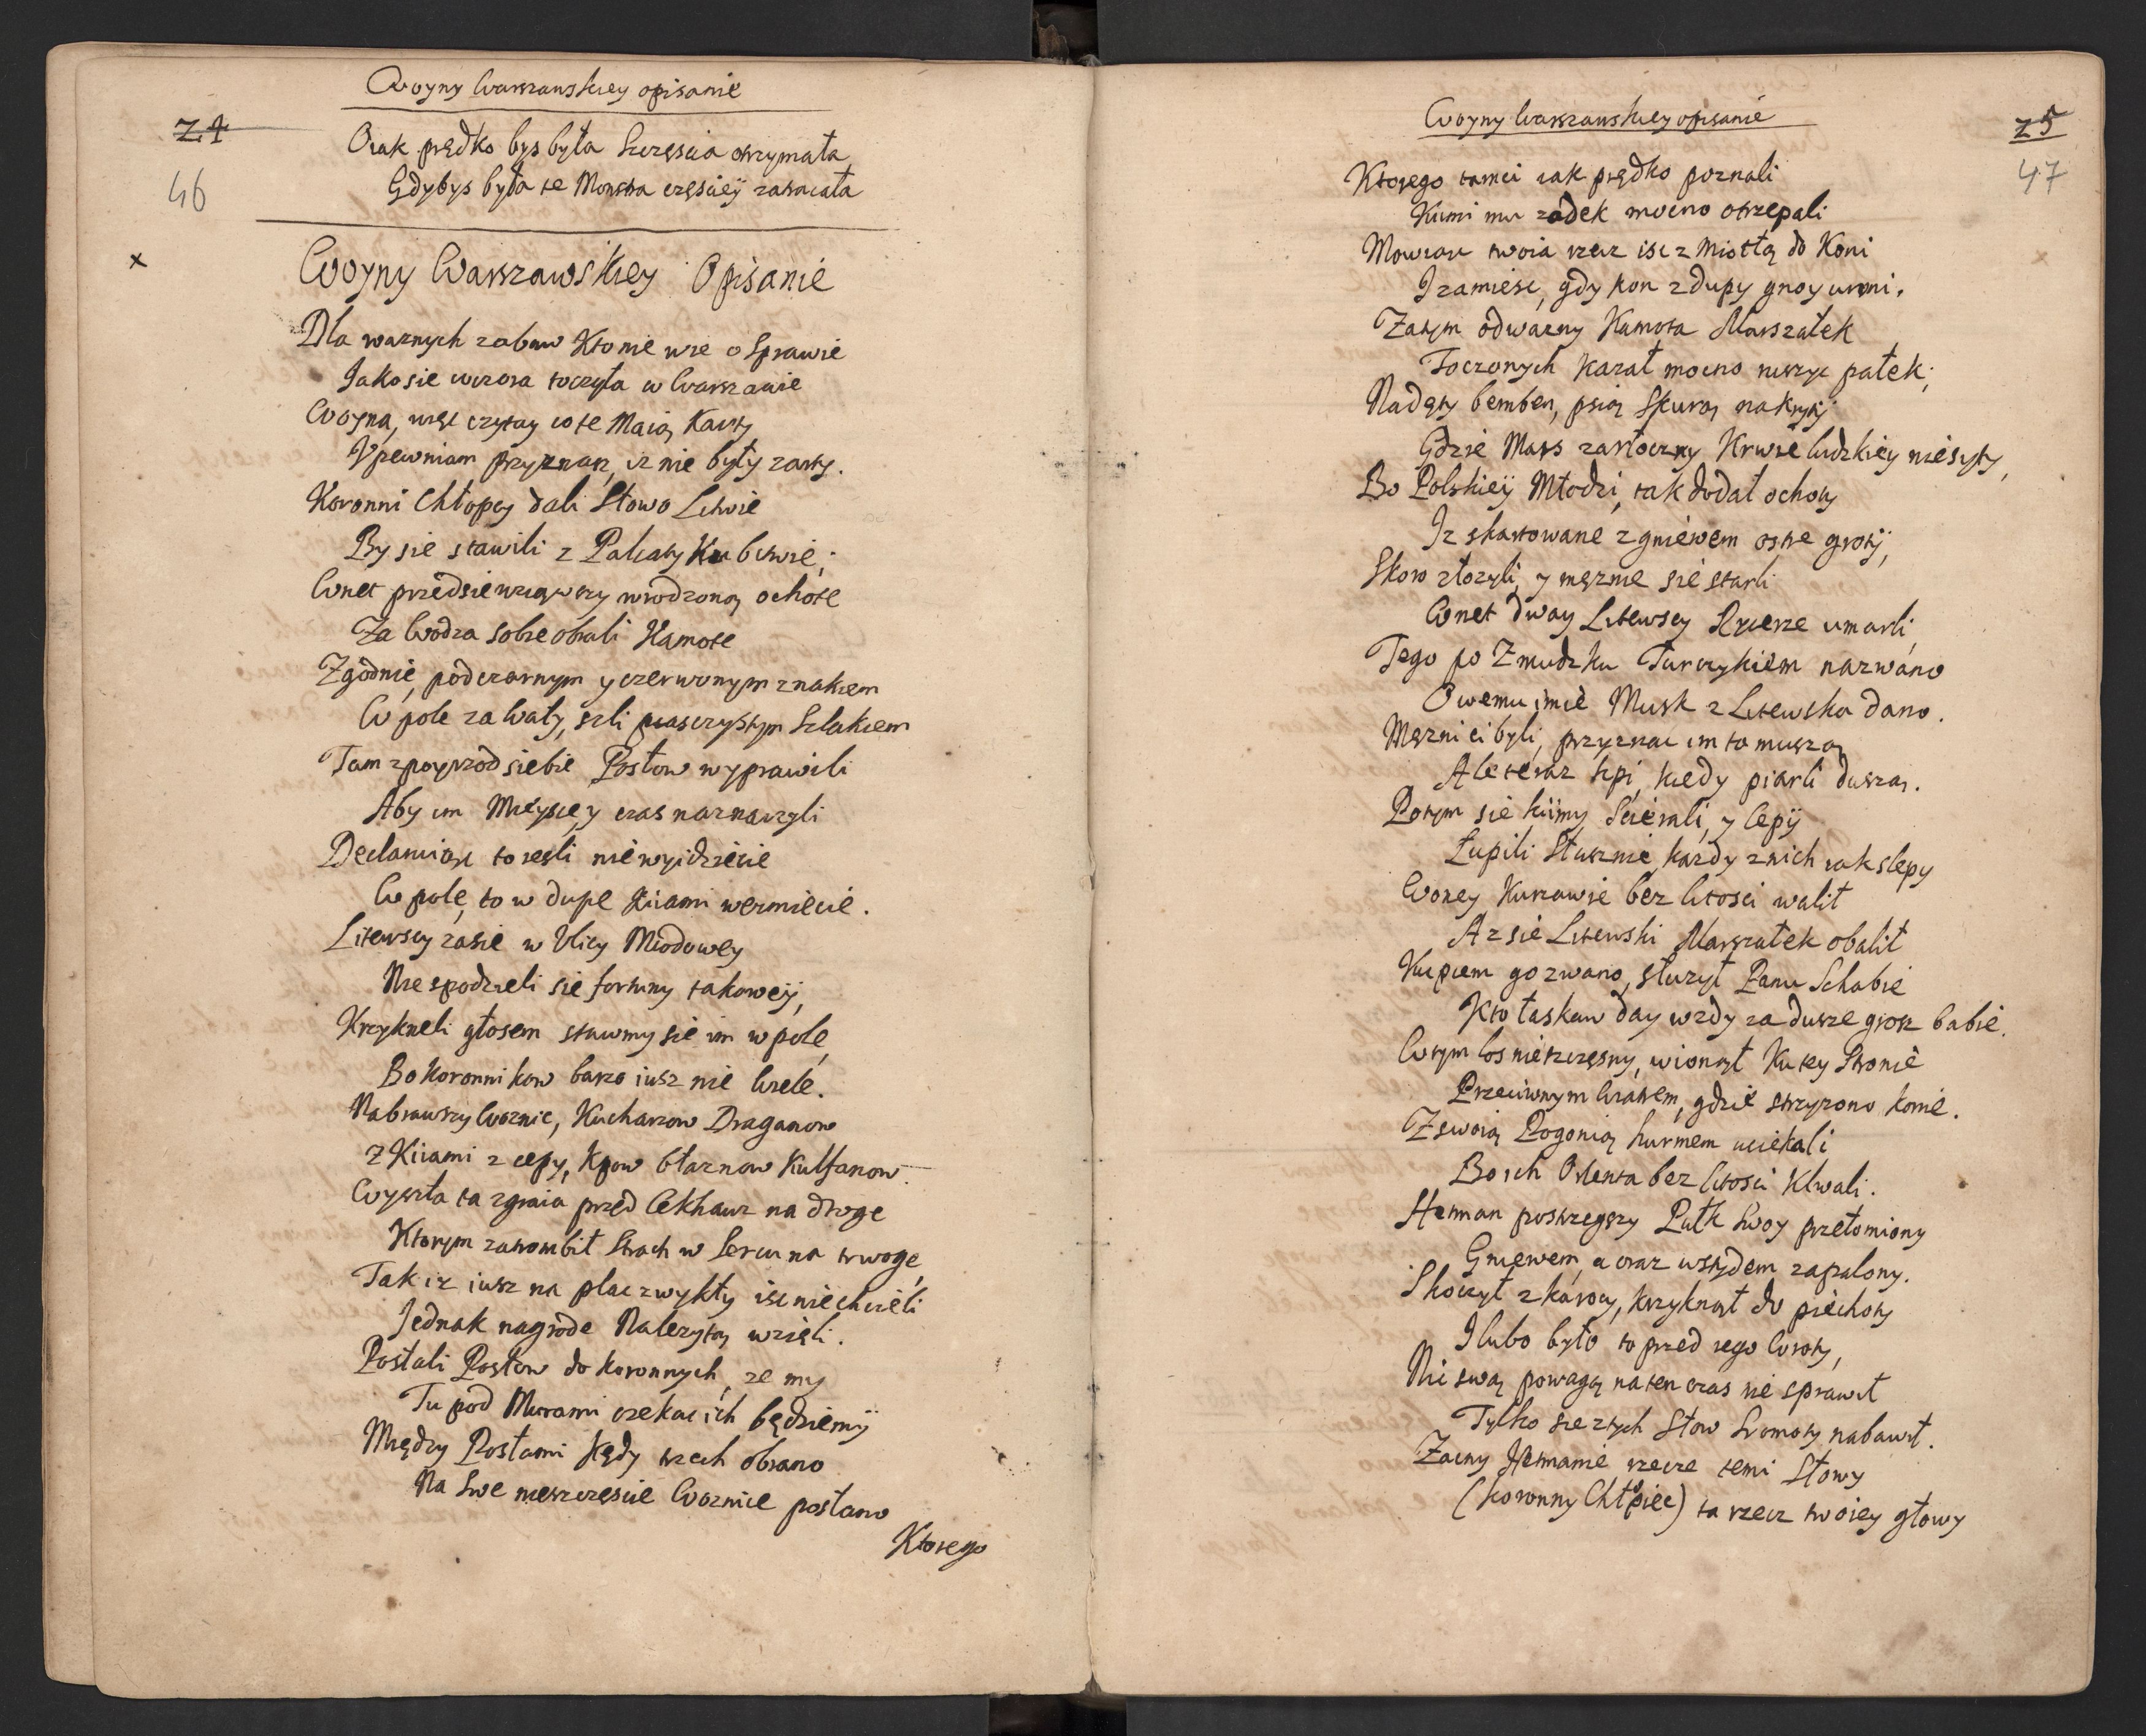 Woyny Warszawskiey opisanie
24
46
O iak prędko bys była Szczęscia otrzymała
Gdybys była te Monstra częsciey zatacała
x
Woyny Warszawskiey Opisanie
Dla waznych zabaw Kto nie wie o Sprawie
Jako sie wczora toczyła w Warszawie
Woyna, więc czytay co te Maią Karty
Vpewniam przyznasz, iz nie były zarty.
Koronni Chłopcy dali Słowo Litwie
By sie stawili z Palcaty Ku bitwie;
Wnet przedsiewziąwszy wrodzoną ochote
Za Wodza sobie obrali Kamote
Zgodnie, pod czarnym y czerwonym znakiem
W pole za Wały, szli piasczystym Szlakiem
Tam zpoyprzod siebie Posłow wyprawili
Aby im Mieysce, y czas naznaczyli
Declaruiąc to iesli nie wyidziecie
W pole, to w dupe Kiiami wezmiecie.
Litewscy zasie w Vlicy Miodowey
Nie spodzieli sie fortuny takoweÿ,
Krzykneli głosem stawmy sie im w pole,
Bo Koronnikow barzo iusz nie Wiele.
Nabrawszy Woznic, Kucharzow Draganow
z Kiiami z cepy, Kpow błaznow Kulfanow.
Wyszła ta zgraia przed Cekhauz na droge
Ktorym zatrombił Strach w Sercu na trwoge,
Tak iz iusz na plac zwykły isc nie chcieli
Jednak nagrode Nalezytą wzieli.
Posłali Posłow do Koronnych, ze my
Tu pod Murami czekac ich będziemÿ
Między Posłami Kędy trzech obrano
Na Swe nieszczęscie Woznice posłano
Ktorego
Woyny Warszawskiey opisanie
25
47
Ktorego tamci iak prędko poznali
Kiimi mu zadek mocno otrzepali
Mowiąc twoia rzecz isc z Miotłą do Koni
I zamiesc, gdy kon z dupy gnoy uroni.
Zatym odwazny Kamota Marszałek
Toczonych kazał mocno ruszyc pałek;
Nadęty bemben, psią Skurą nakrytÿ
Gdzie Mars zarłoczny Krwie ludzkiey niesyty,
Bo Polskieÿ Młodzi, tak dodał ochoty
Iz skartowane z gniewem ostre grotÿ,
Skoro złozyli, y męznie sie starli
Wnet dway Litewscy Rycerze umarli,
Tego po Zmudzku Turczykiem nazwano
Owemu imie Musk z Litewska dano.
Męzni ci byli, przyznac im to muszą
Ale teraz kpi, kiedy piarli duszą.
Potym sie kiimy Scierali, y lepÿ
Łupili Słusznie, kazdy z nich iak slepy
W oney Kurzawie bez litosci walił
Az sie Litewski Marszałek obalił
Kupcem go zwano, słuzył Panu Schabie
Kto łaskaw day wzdy za dusze grosz babie.
W tym los nieszczęsny, wionął Ku tey Stronie
Przeciwnym Wiatrem, gdzie strzyzono konie.
Z swoią Pogonią hurmem uciekali
Bo ich Orlenta bez litosci Klwali.
Hetman postrzegszy Pułk Swoy przełomiony
Gniewem, a oraz wstydem zapalony.
Skoczył z karocy, krzyknął do piechoty
I lubo było to przed iego Wroty,
Nic swą powagą na ten czas nie sprawił
Tylko sie z tych Słow Sromoty nabawił.
Zacny Hetmanie rzecze temi Słowy
(koronny Chłopiec) ta rzecz twoiey głowy